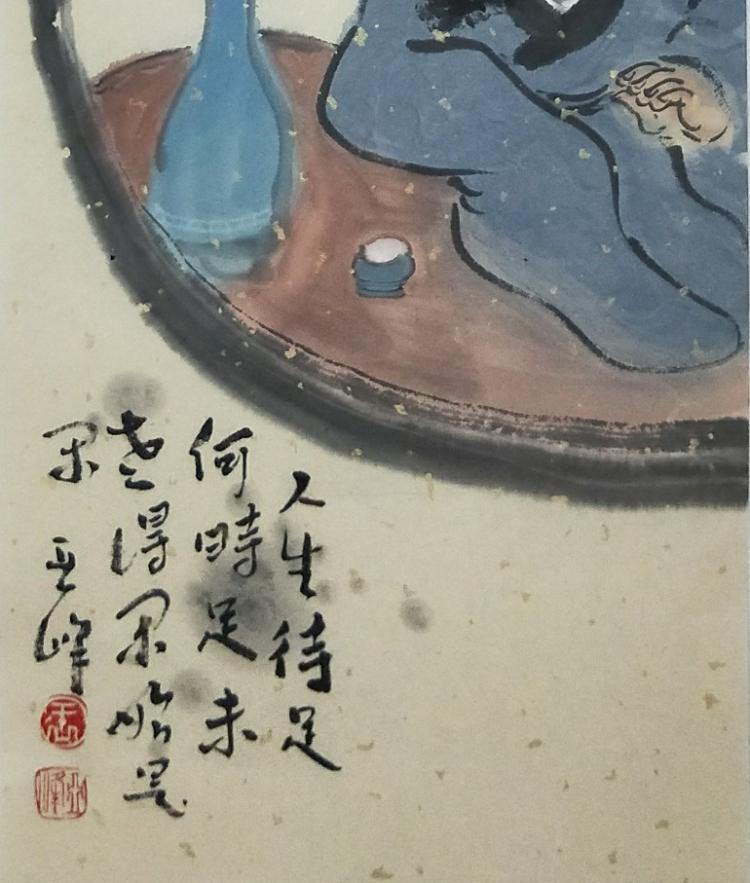 人生待足
何時足未
老得閑始是
閑 亞峰